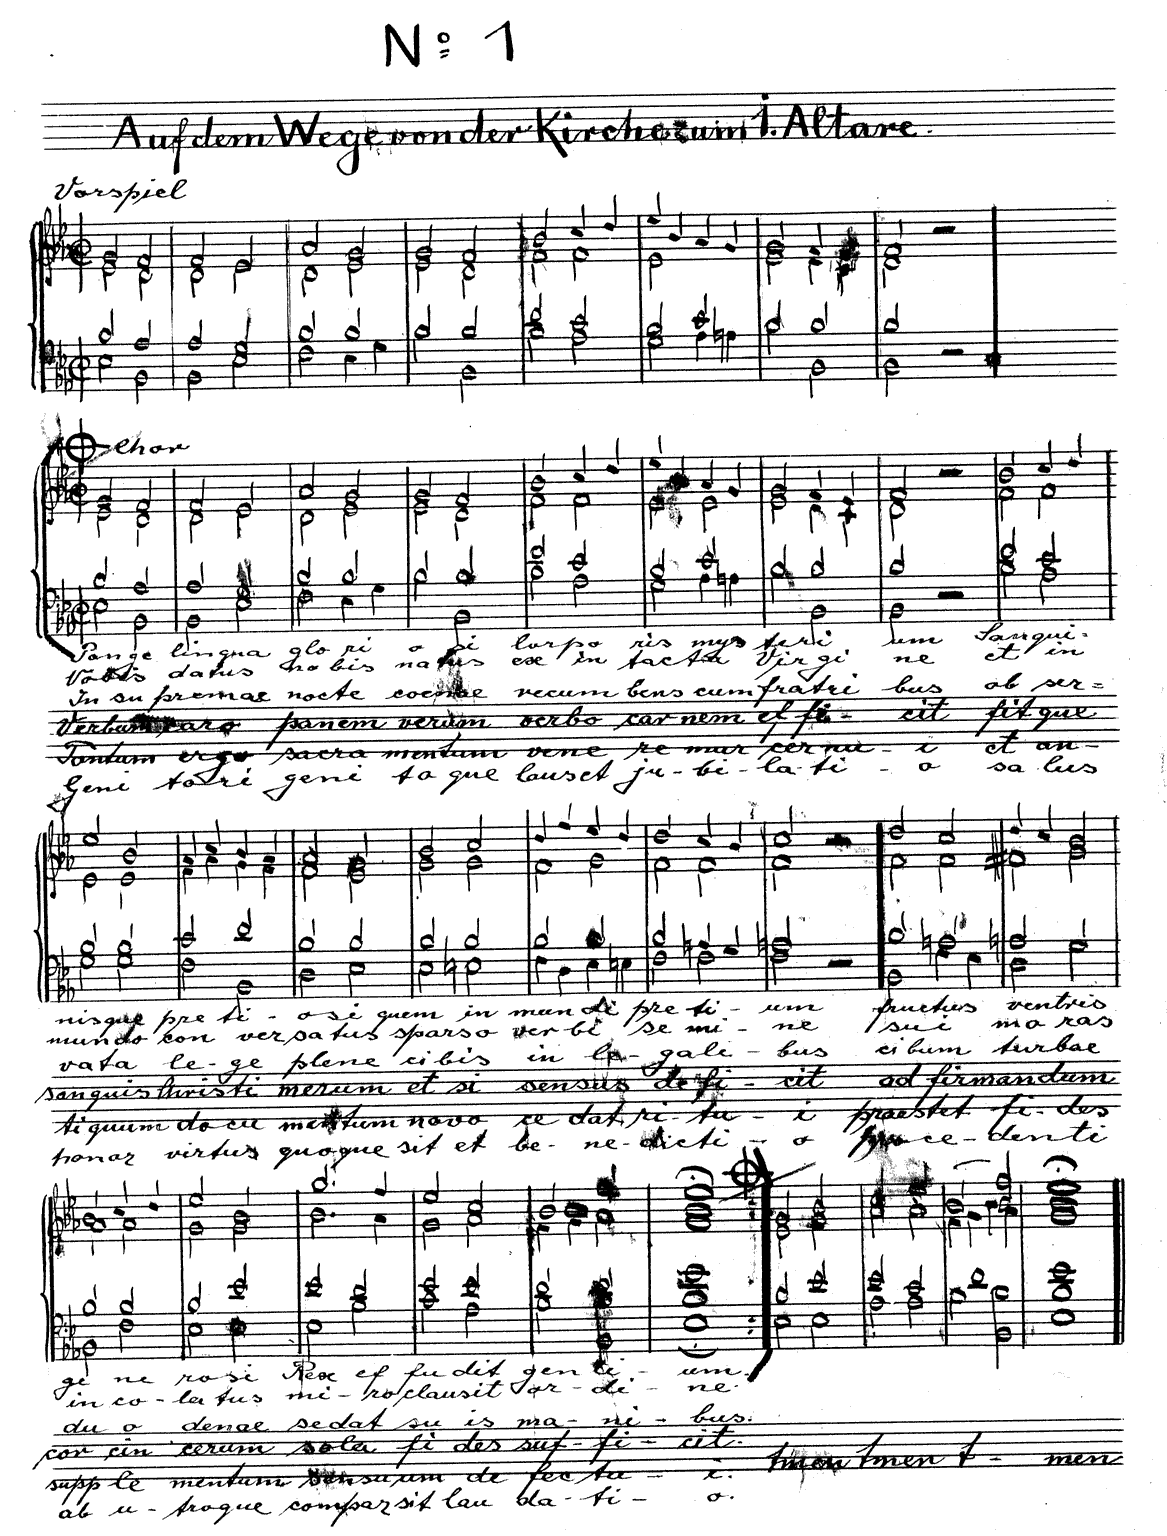 Nº 1
Auf dem Wege von der Kirche zum 1. Altare.
Vorspiel
Chor
Pange lingua glo ri o si Corpo ris mys teri um Sangui-
Vobis datus nobis natus ex in tacta Virgi ne et in
In su premae nocte coenae recum bens cum fratri bus ob ser=
Verbum caro panem verum verbo car nem ef fi - cit fit que
Tantum ergo sacra mentum vene re mur cer nu - i et an-
Geni to ri geni to que laus et ju - bi - la - ti - o sa lus
nisque pre ti - o si quem in mun di pre ti - um fructus ventris
mundo con ver sa tus sparso ver bi se mi - ne sui mo ras
vata le - ge plene cibis in le - gali - bus cibum turbae
sanguis Christi merum et si sensus de fi - cit ad firmandum
tiquum do cu mentum novo ce dat ri - tu - i praestet fi - des
honor virtus quoque sit et be - ne - dicti - o pro ce - denti
ge ne ro si Rex ef fu dit gen ti - um.
in co - la tus mi - ro clausit or - di - ne.
du o denae se dat su is ma - ni - bus.
cor cin cerum sola fi des suf - fi - cit.
supp le mentum sensuum de fec tu - i. Amen Amen A - men
ab u - troque compar sit lau da - ti - o.